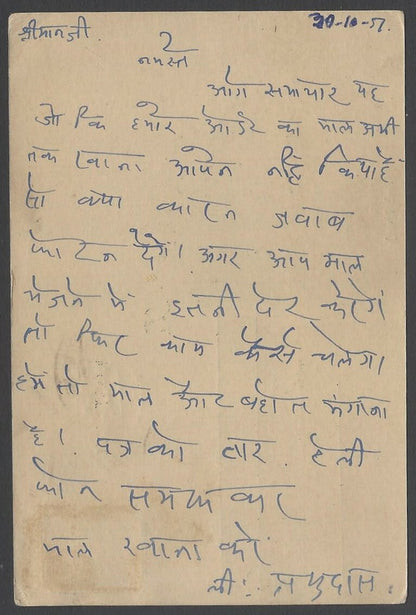 श्रीमानजी. 30-10-51.
नमस्ते
आगे समाचार यह
जो कि हमारे आर्डर का माल अभी
तक रवाना आपने नहि किया है
सो क्या कारन जवाब
फोरन देंगे। अगर आप माल
भेजने में इतनी देर करोगे
तो फिर काम कैसे चलेगा।
हमे तो माल और बहोत मंगाना
है। पत्र को तार. टेली
फोन समझ कर
माल रवाना करें
ली: